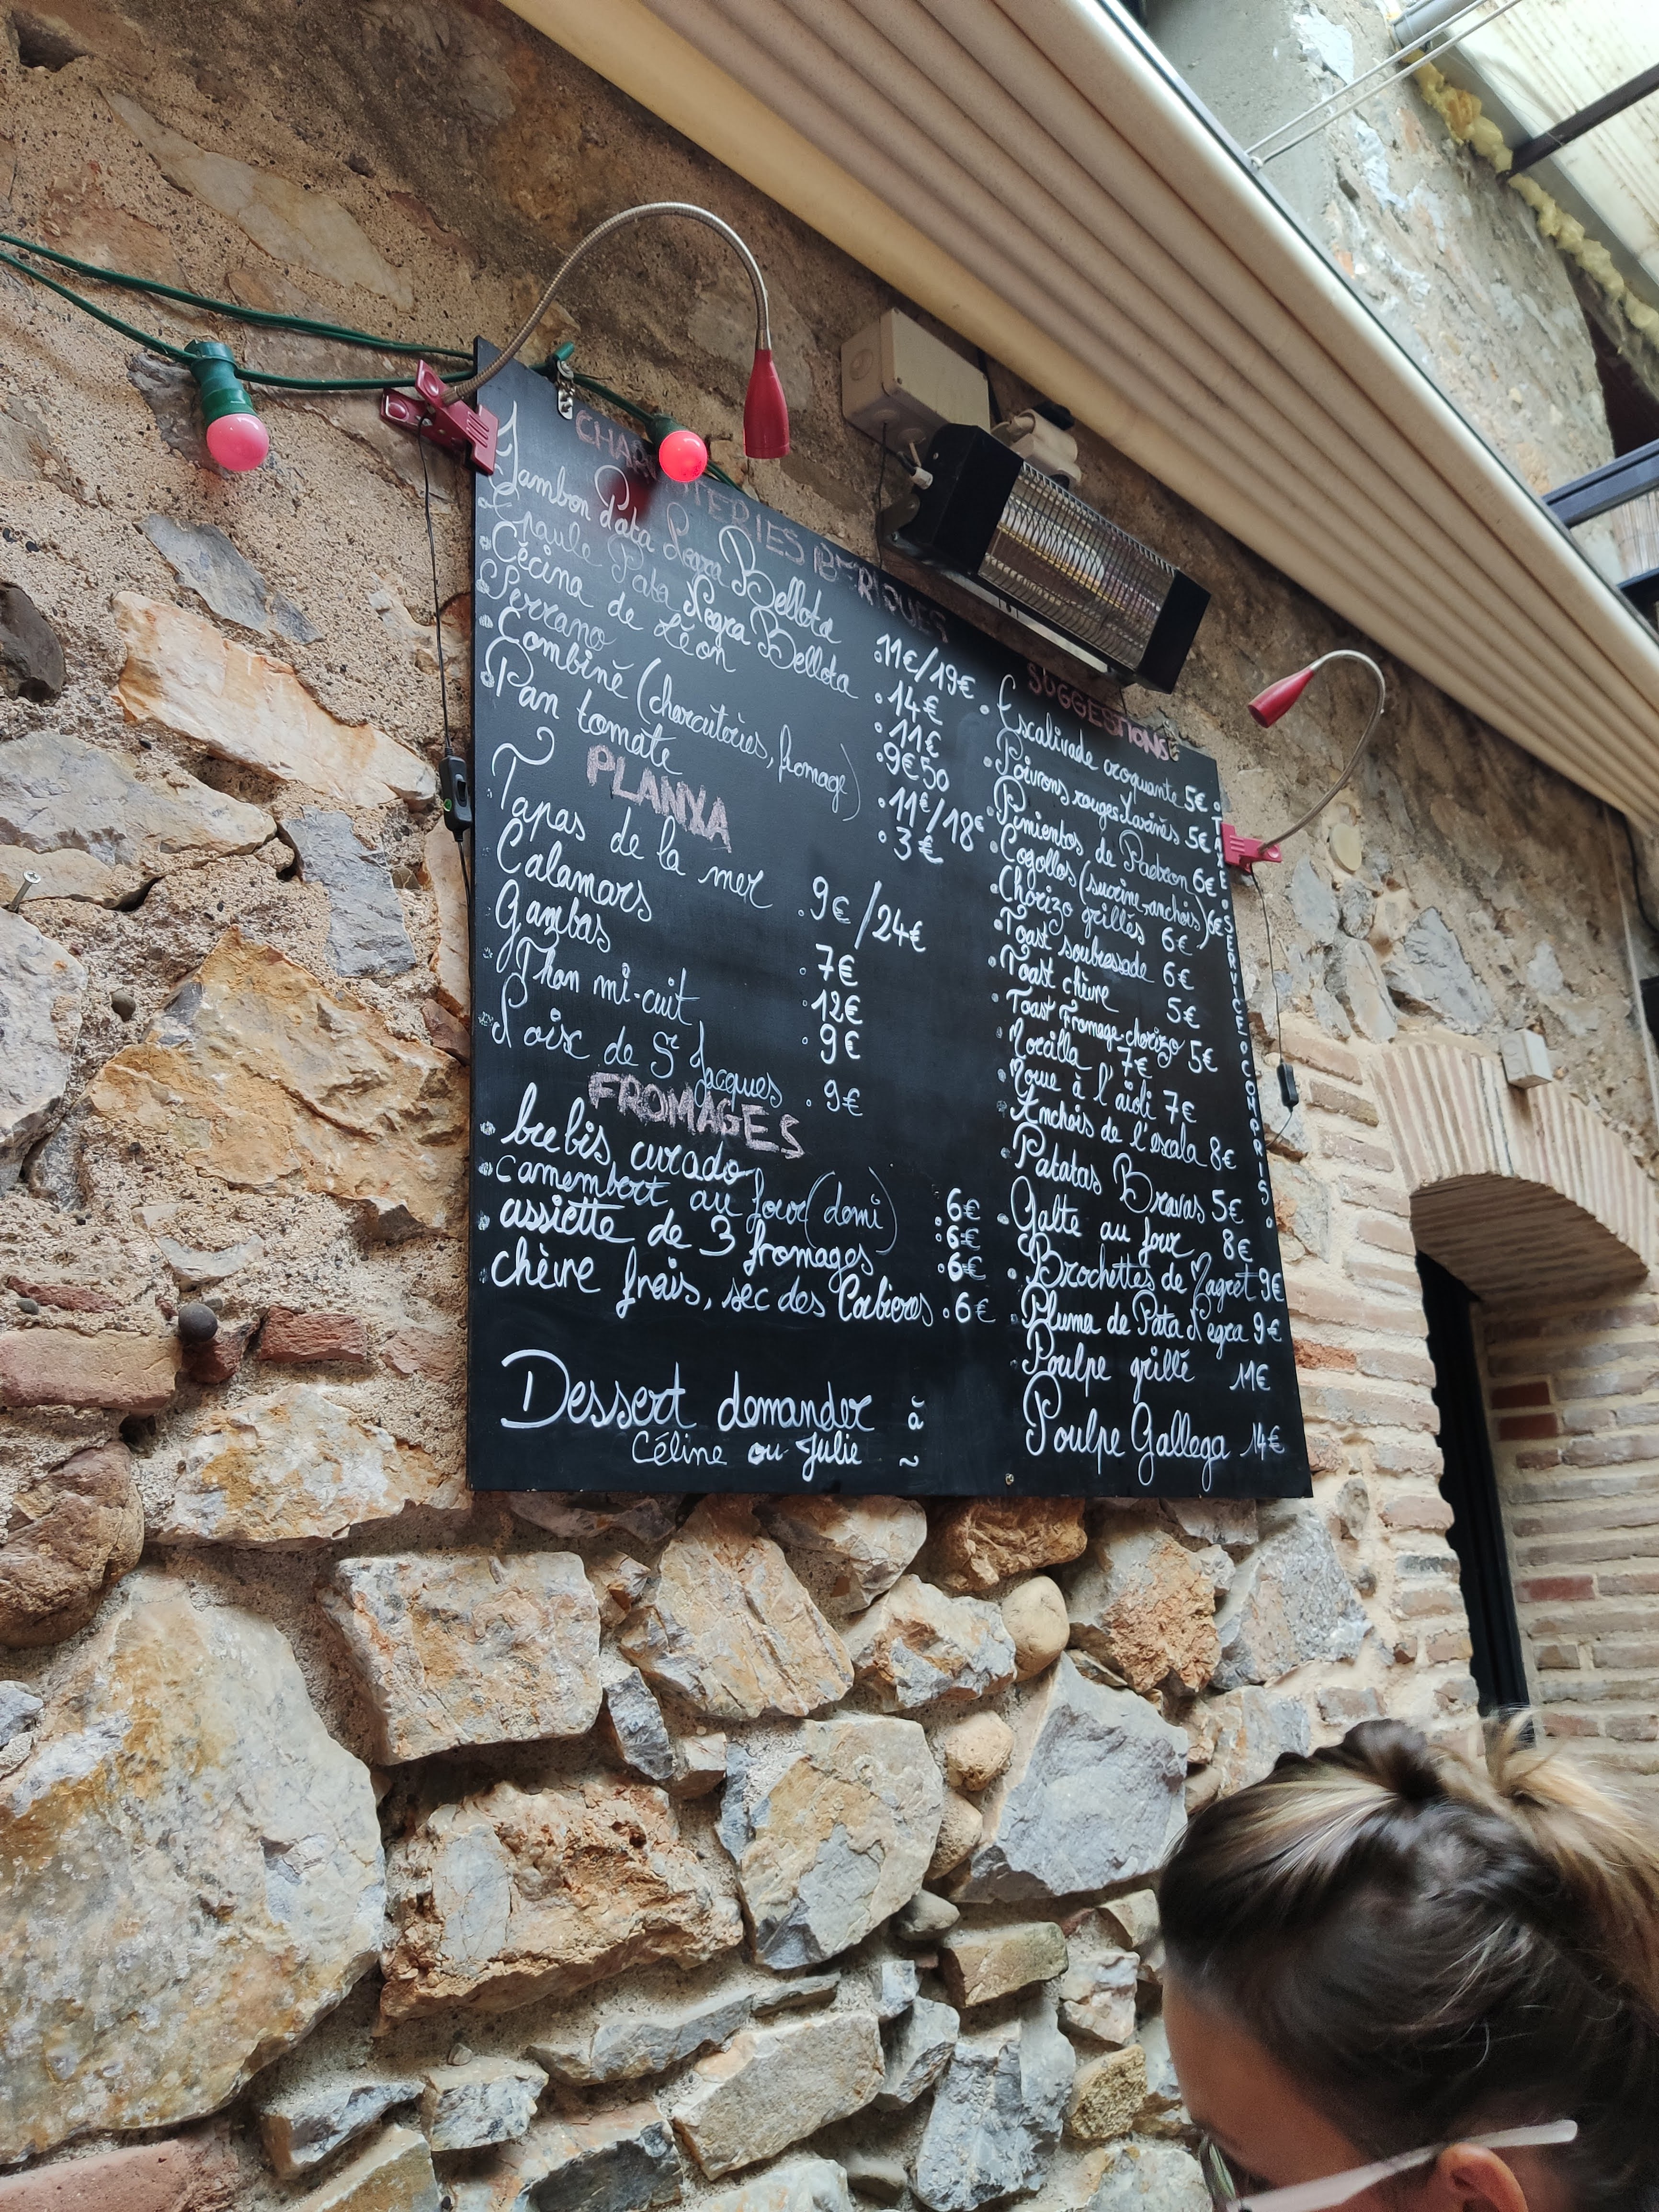 CHARCUTERIES IBERIQUES
Jambon Pata Negra Bellota 11€/19€
Epaule Pata Negra Bellota 14€
Cécina de Léon 11€
Serrano 9€50
Combiné (charcutèries, fromage) 11€/18€
Pan tomate 3€
PLANXA
Tapas de la mer 9€/24€
Calamars 7€
Gambas 12€
Thon mi-cuit 9€
Noix de St Jacques 9€
FROMAGES
brebis curado 6€
camembert au four (demi) 6€
assiette de 3 fromages 6€
chèvre frais, sec des Corbieres 6€
Dessert demander à
Céline ou Julie ~
SUGGESTIONS
Escalivade croquante 5€
Poivrons rouges Marinés 5€
Pimientos de Padron 6€
Cogollos (sucrine, anchois) 6€
Chorizo grillés 6€
Toast soubressade 6€
Toast chèvre 5€
Toast Fromage-chorizo 5€
Morcilla 7€
Moue à l'aïoli 7€
Anchois de l'escala 8€
Patatas Bravas 5€
Galte au four 8€
Brochettes de Magret 9€
Pluma de Pata Negra 9€
Poulpe grillé 11€
Poulpe Gallega 14€
TAXE SERVICE COMPRIS